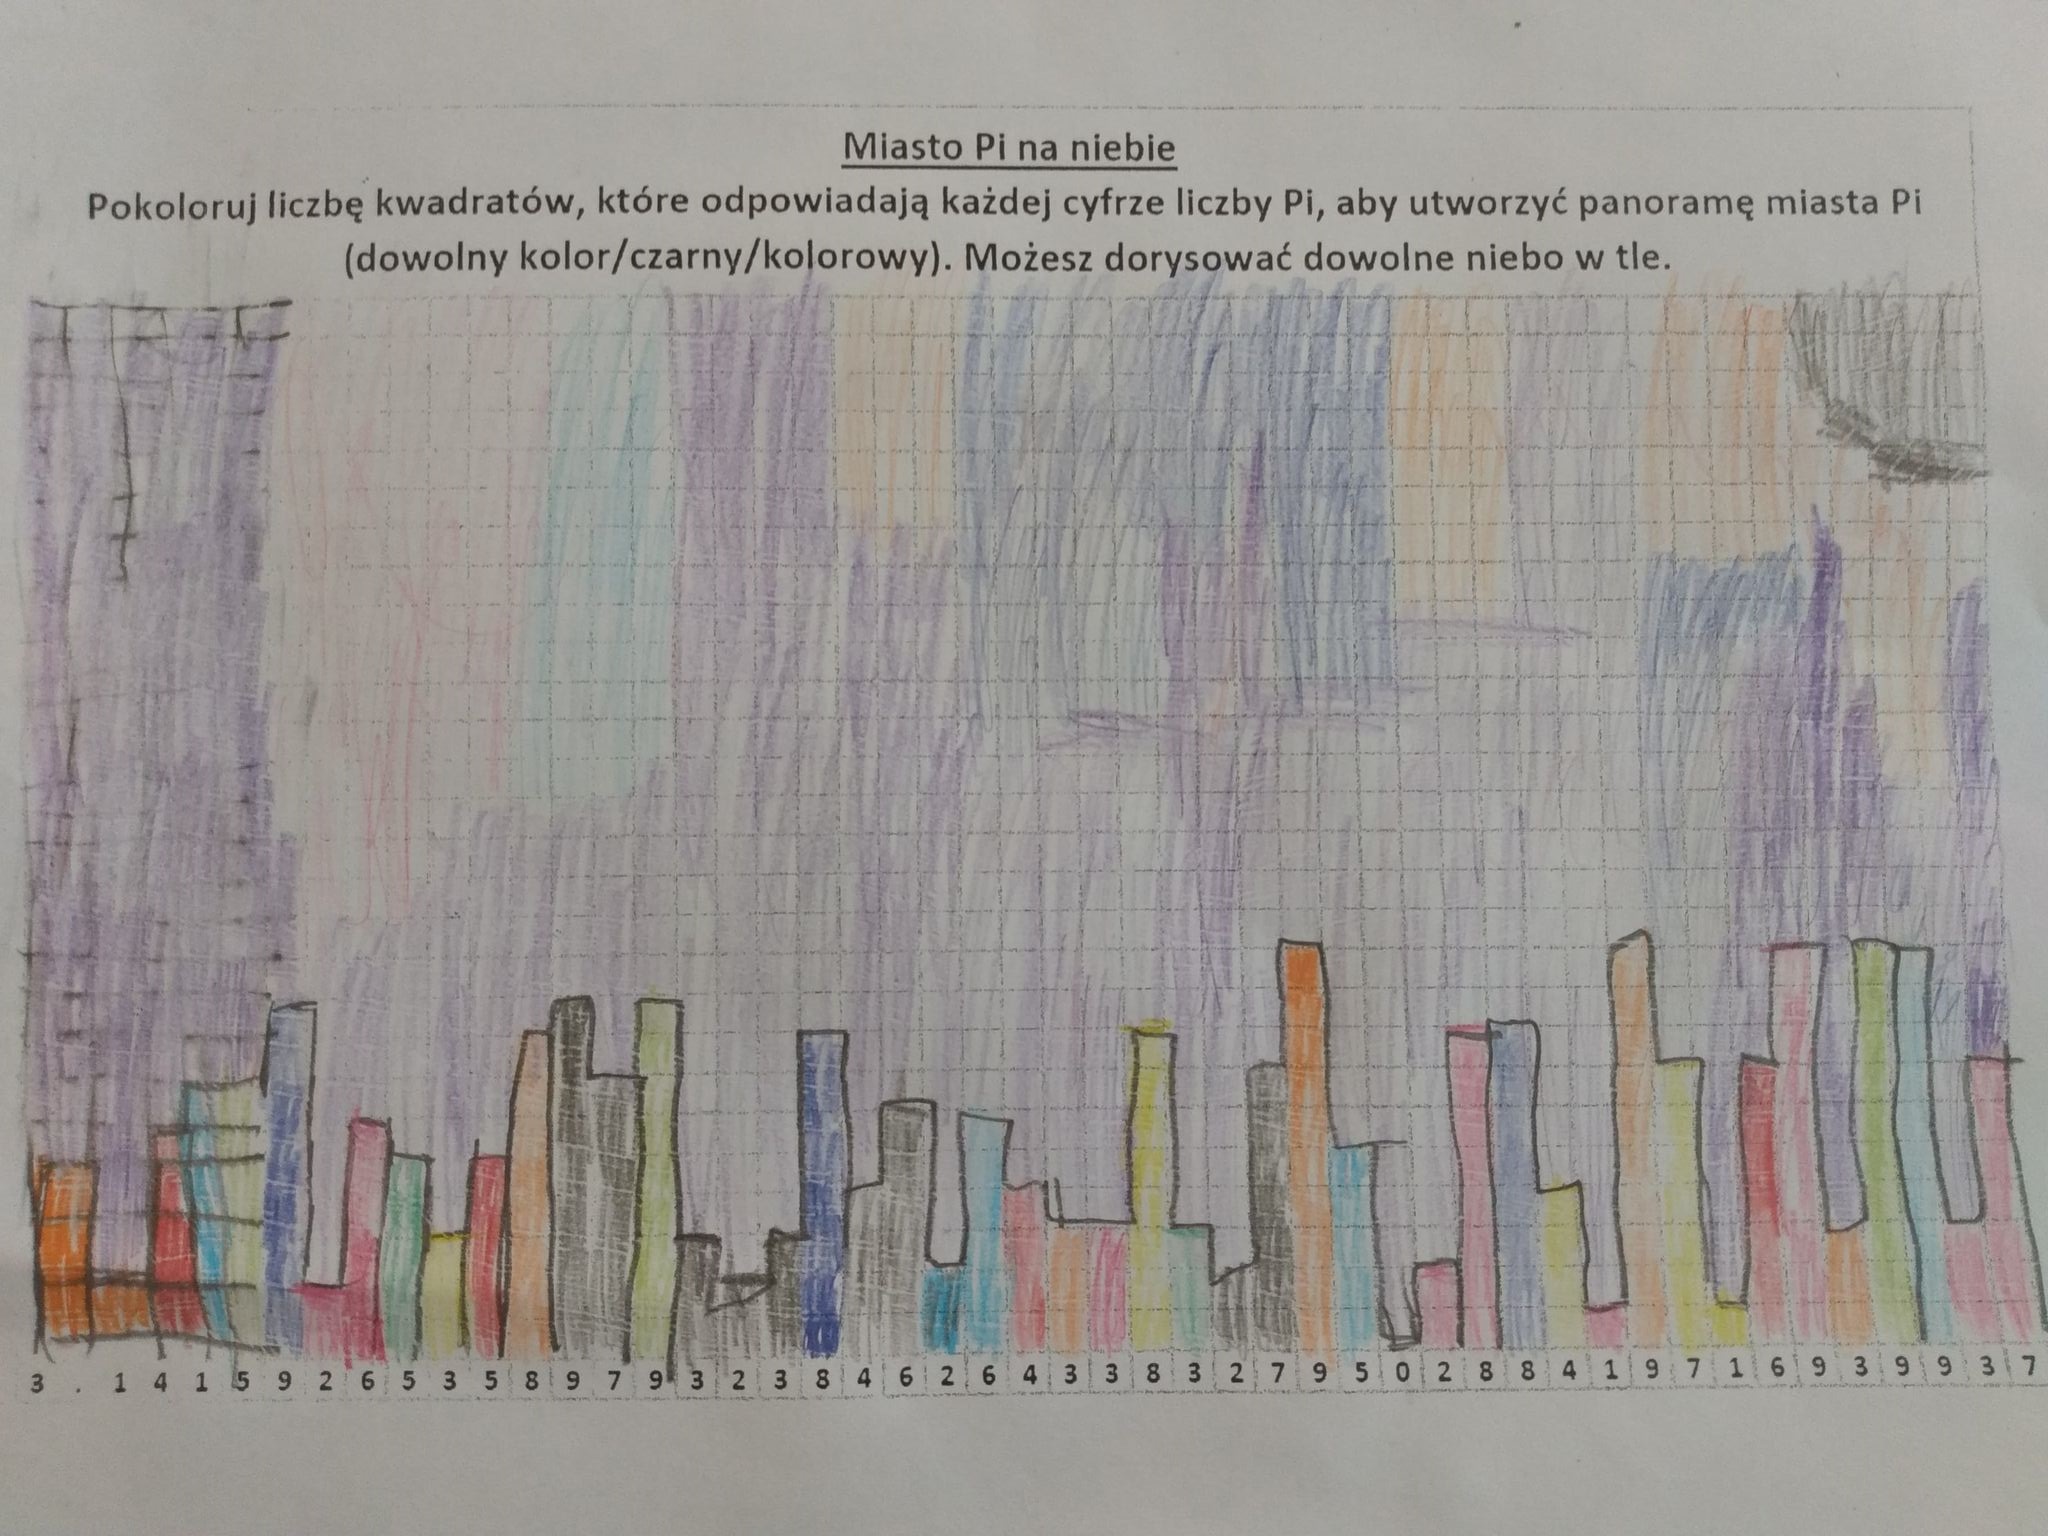 Miasto Pi na niebie
Pokoloruj liczbę kwadratów, które odpowiadają każdej cyfrze liczby Pi, aby utworzyć panoramę miasta Pi
(dowolny kolor/czarny/kolorowy). Możesz dorysować dowolne niebo w tle.
3 . 1 4 1 5 9 2 6 5 3 5 8 9 7 9 3 2 3 8 4 6 2 6 4 3 3 8 3 2 7 9 5 0 2 8 8 4 1 9 7 1 6 9 3 9 9 3 7